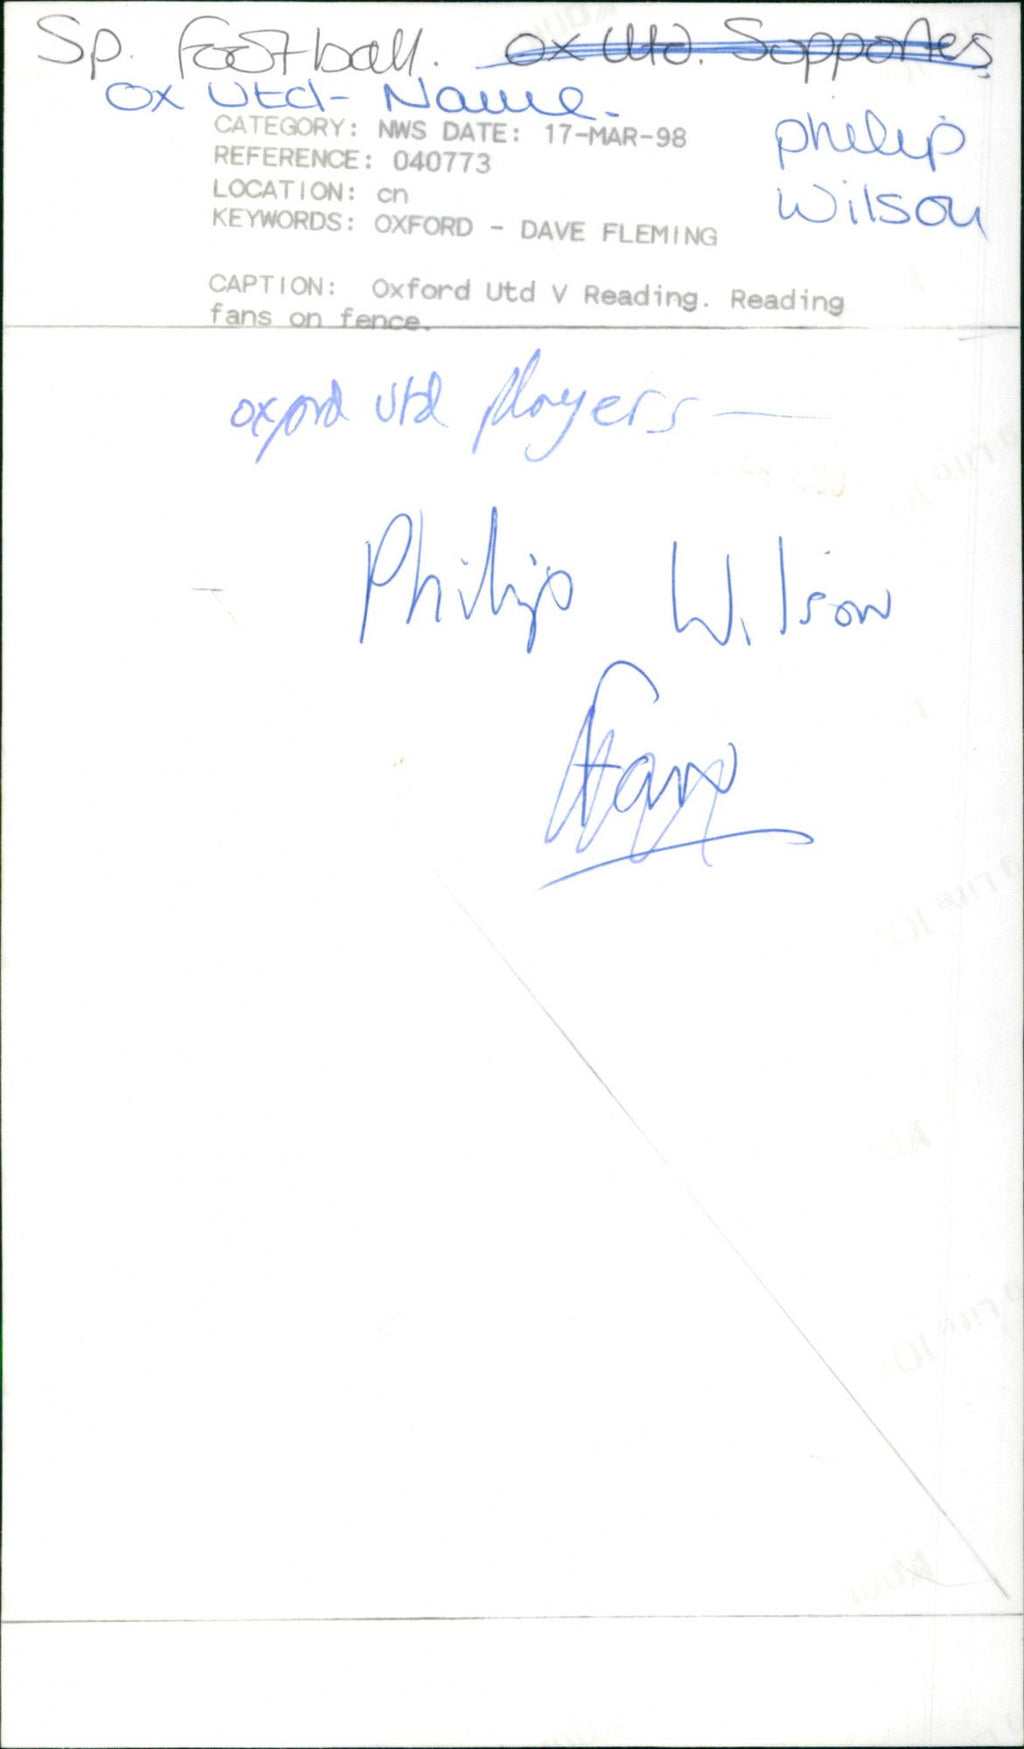 Sp. football. Ox Utd. Supporters
Ox Utd - Name.
Philip
Wilson
CATEGORY: NWS DATE: 17-MAR-98
REFERENCE: 040773
LOCATION: cn
KEYWORDS: OXFORD - DAVE FLEMING
CAPTION: Oxford Utd V Reading. Reading
fans on fence.
Oxford Utd players —
Philip Wilson